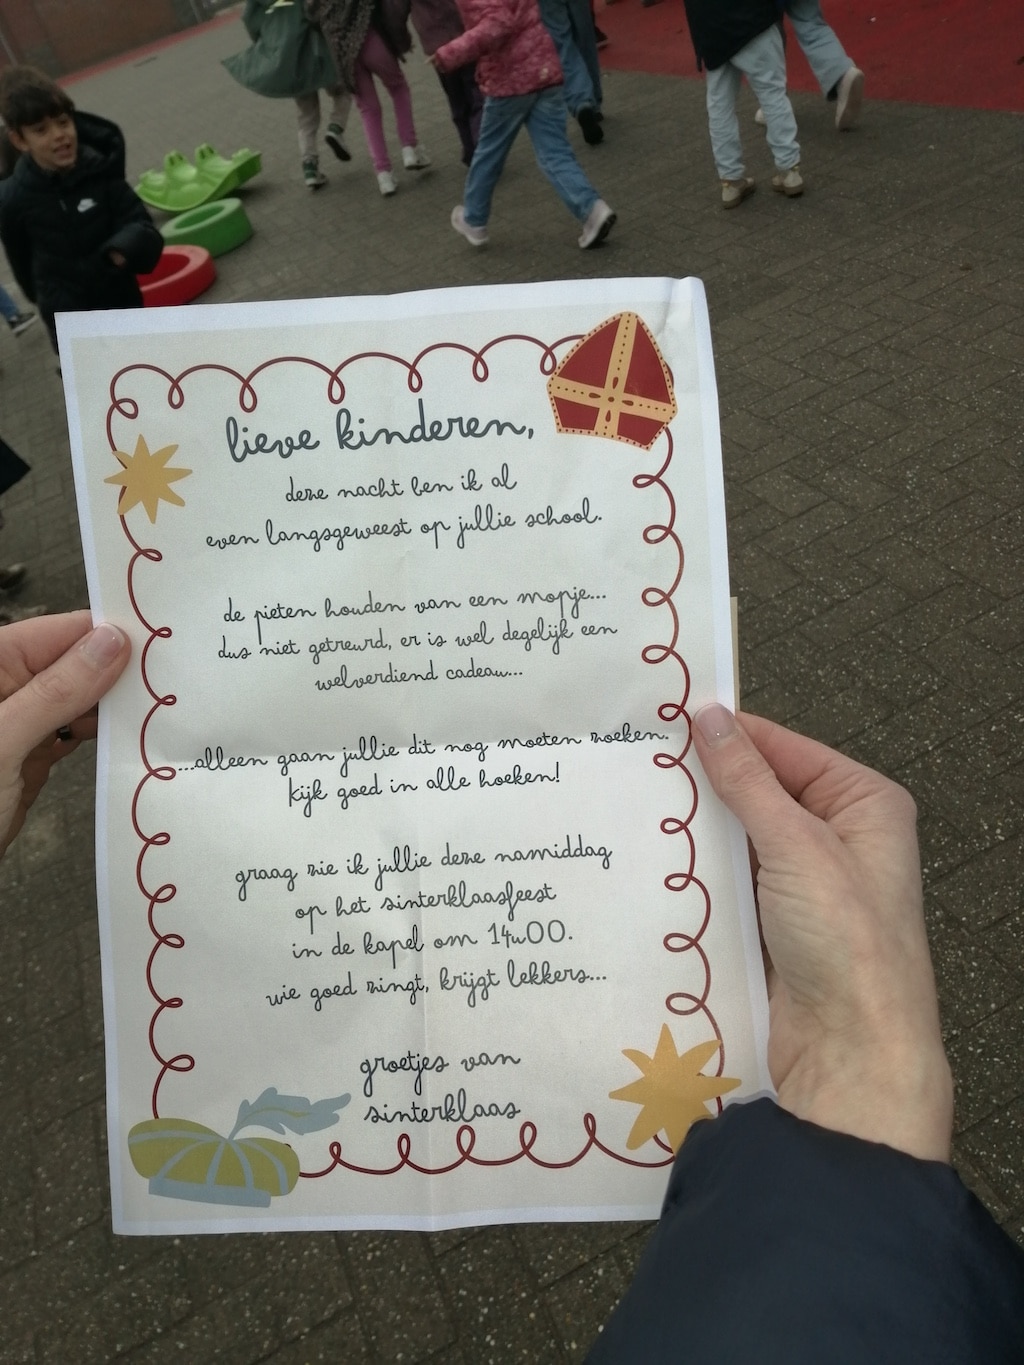 lieve kinderen,
deze nacht ben ik al
even langsgeweest op jullie school.
de pieten houden van een mopje...
dus niet getreurd, er is wel degelijk een
welverdiend cadeau...
...alleen gaan jullie dit nog moeten zoeken.
kijk goed in alle hoeken!
graag zie ik jullie deze namiddag
op het sinterklaasfeest
in de kapel om 14u00.
wie goed zingt, krijgt lekkers...
groetjes van
sinterklaas